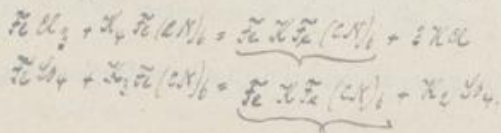 FeCl₃ + K₄Fe(CN)₆ = FeKFe(CN)₆ + 3KCl
FeSO₄ + K₃Fe(CN)₆ = FeKFe(CN)₆ + K₂SO₄.